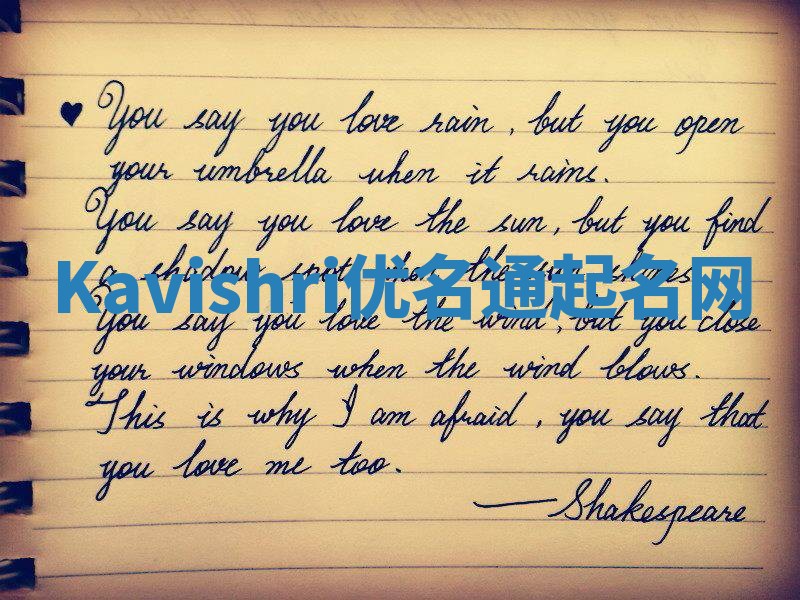 ♥ You say you love rain, but you open
your umbrella when it rains.
You say you love the sun, but you find
a shadow spot when the sun shines.
Kavishri优名通起名网
You say you love the wind, but you close
your windows when the wind blows.
This is why I am afraid, you say that
you love me too.
— Shakespeare